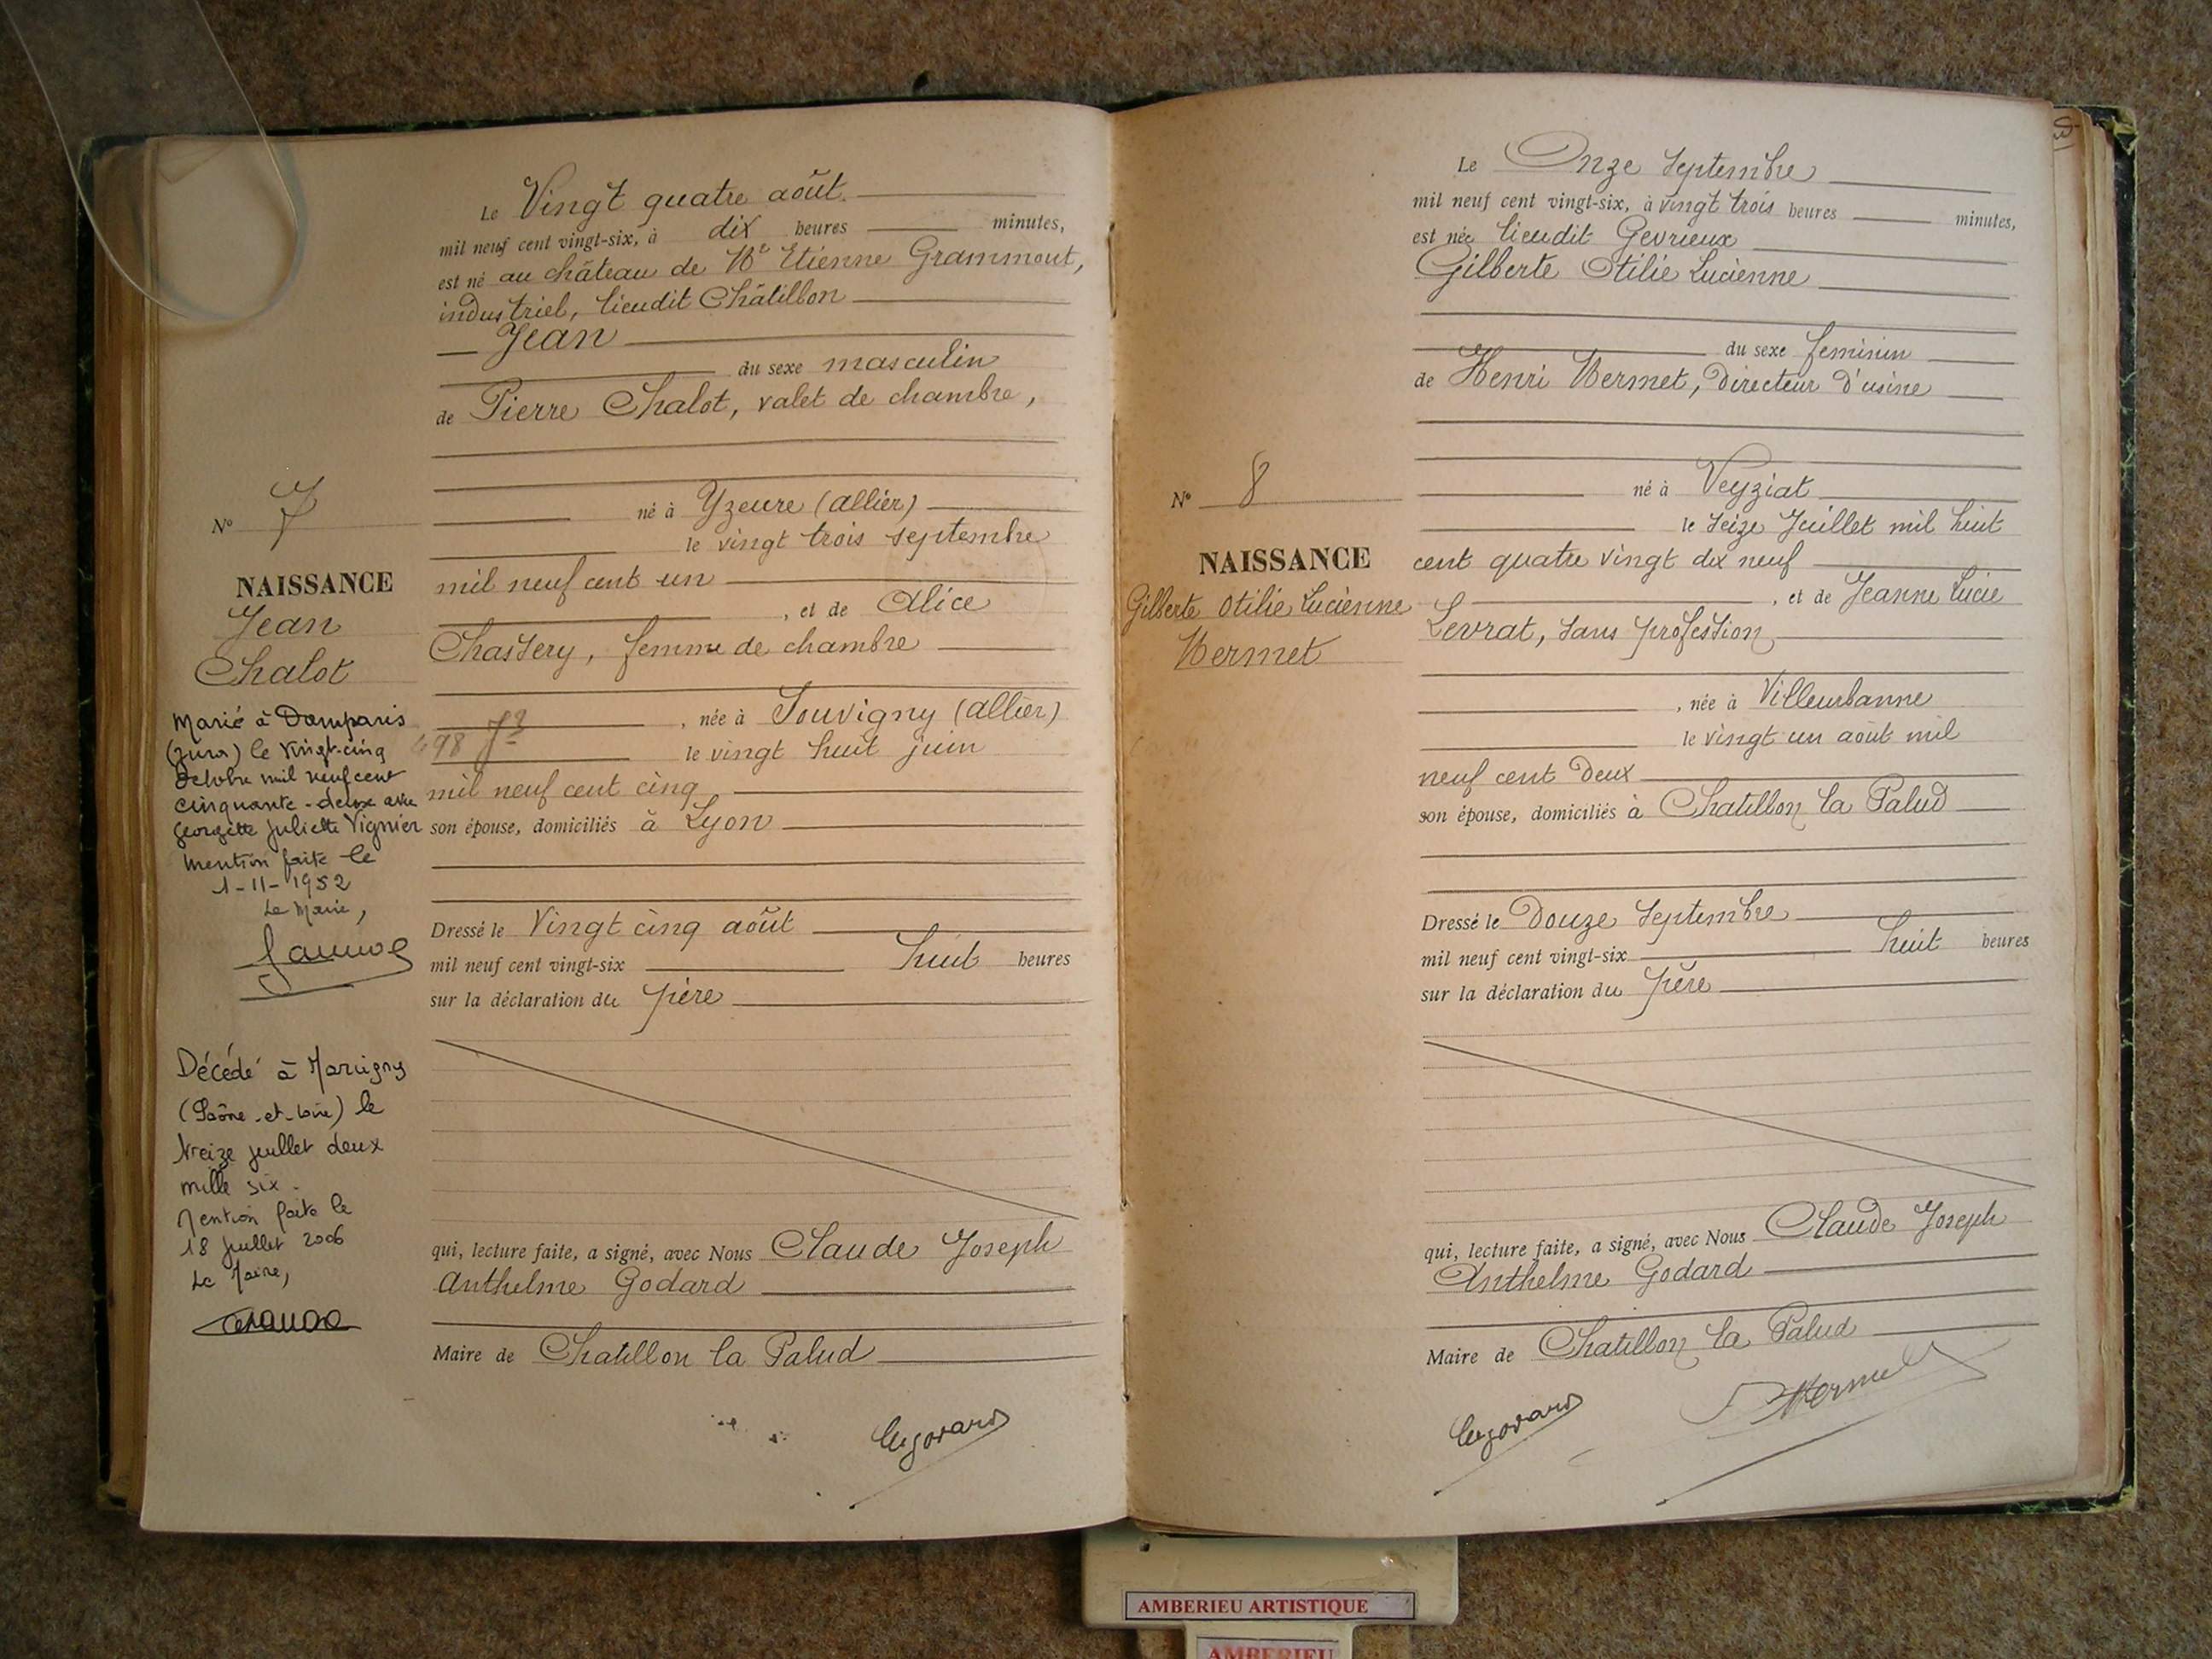 Le Vingt quatre août
mil neuf cent vingt-six, à dix heures minutes,
est né au château de Mr Etienne Grammont,
industriel, lieudit Châtillon
Jean
du sexe masculin
de Pierre Chalot, valet de chambre,
né à Yzeure (Allier)
le vingt trois septembre
mil neuf cent un
, et de Alice
Chassery, femme de chambre
, née à Souvigny (Allier)
le vingt huit juin
mil neuf cent cinq
son épouse, domiciliés à Lyon
Dressé le Vingt cinq août
mil neuf cent vingt-six huit heures
sur la déclaration du père
qui, lecture faite, a signé, avec Nous Claude Joseph
Anthelme Godard
Maire de Chatillon la Palud
N° 7
NAISSANCE
Jean
Chalot
Marié à Damparis
(Jura) le vingt-cinq
Octobre mil neuf cent
cinquante-deux avec
Georgette Juliette Vignier
Mention faite le
1-11-1952
Le Maire,
Décédé à
(Saône-et-Loire) le
treize juillet deux
mille six.
Mention faite le
18 juillet 2006
Le Maire,
Le Onze Septembre
mil neuf cent vingt-six, à vingt trois heures minutes,
est née lieudit Gevrieux
Gilberte Otilie Lucienne
du sexe feminin
de Henri Mermet, Directeur d'usine
né à Veyziat
le seize Juillet mil huit
cent quatre vingt dix neuf
, et de Jeanne Lucie
Levrat, sans profession
, née à Villeurbanne
le vingt un août mil
neuf cent deux
son épouse, domiciliés à Chatillon la Palud
Dressé le Douze Septembre
mil neuf cent vingt-six huit heures
sur la déclaration du père
qui, lecture faite, a signé, avec Nous Claude Joseph
Anthelme Godard
Maire de Chatillon la Palud
N° 8
NAISSANCE
Gilberte Otilie Lucienne
Mermet
AMBERIEU ARTISTIQUE
AMBERIEU